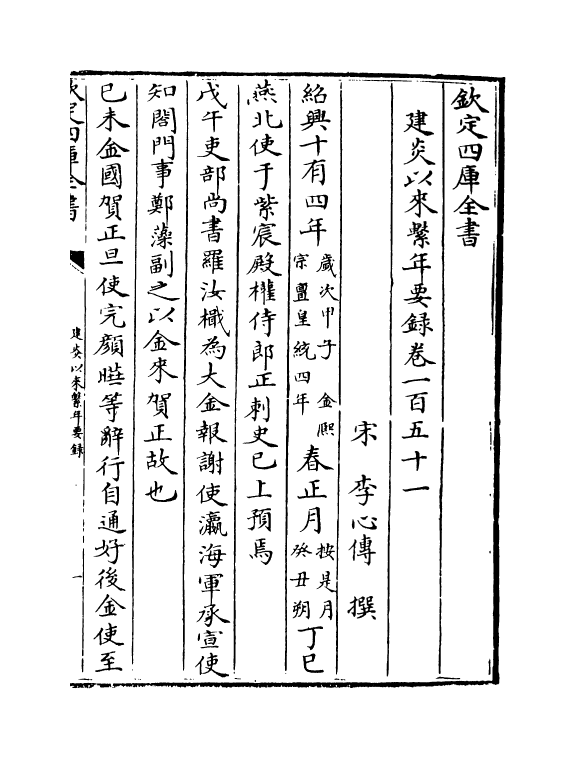 欽定四庫全書
建炎以來繫年要錄卷一百五十一
宋 李心傳 撰
紹興十有四年歲次甲子 金熙宗亶皇統四年春正月按是月癸丑朔丁巳
燕北使于紫宸殿權侍郎正刺史已上預焉
戊午吏部尚書羅汝檝為大金報謝使瀛海軍承宣使
知閤門事鄭藻副之以金來賀正故也
己未金國賀正旦使完顔曣等辭行自通好後金使至
欽定四庫全書
建炎以來繫年要錄
一